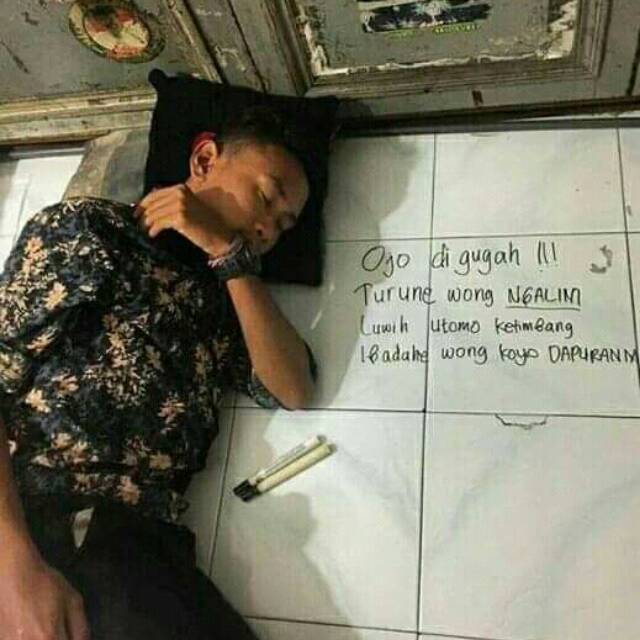 Ojo di gugah !!!
Turune wong NGALIM
Luwih utomo ketimbang
Ibadahe wong koyo DAPURANM